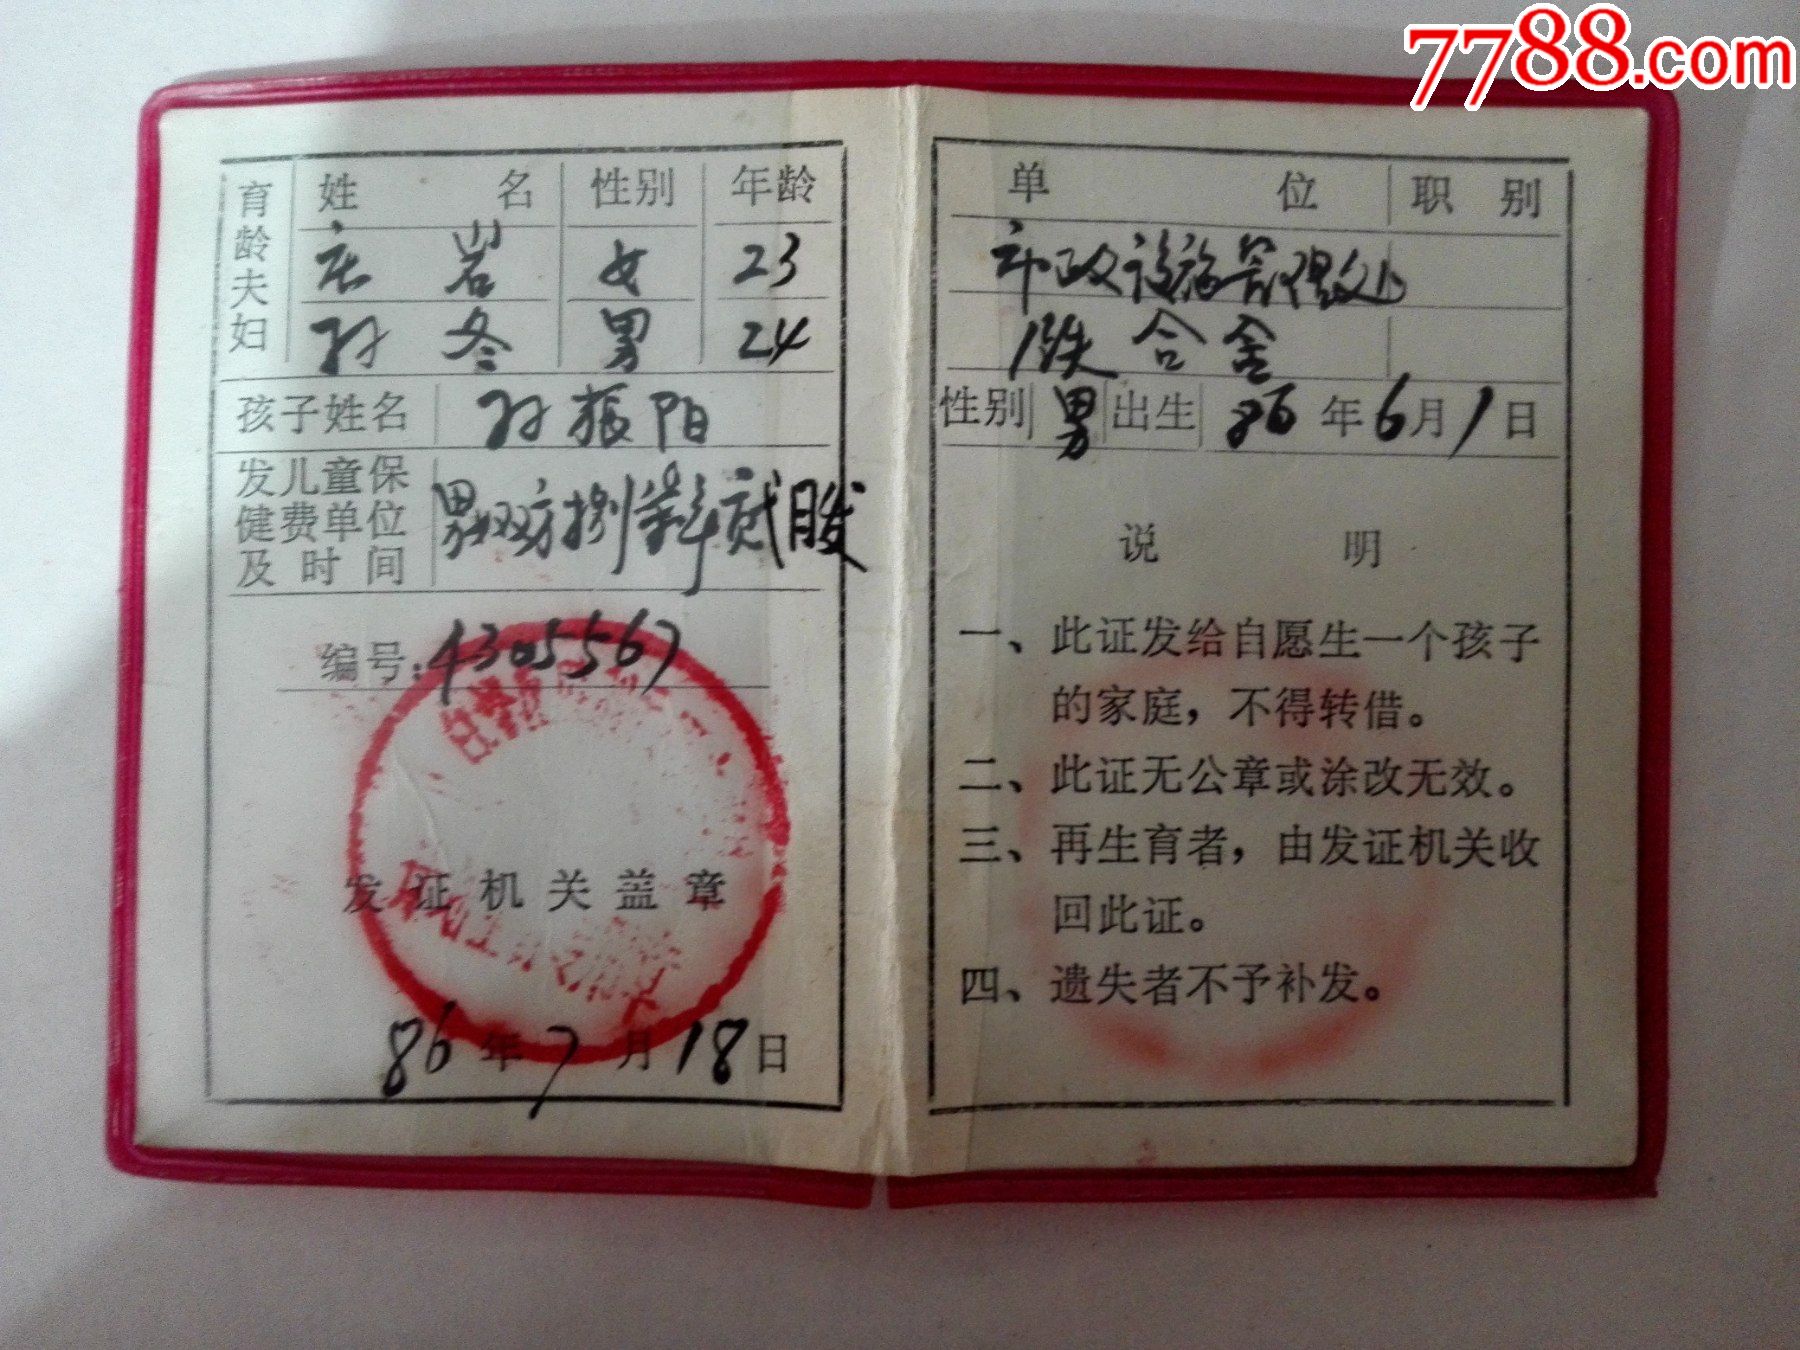 7788.com
育龄夫妇
姓 名 性别 年龄
岩 女 23
孙 冬 男 24
孩子姓名 孙振阳
发儿童保
健费单位
及时间
编号:4305567
发证机关盖章
86年7月18日
单 位 职 别
市政设施管理处
合舍
性别 男 出生 86年6月1日
说 明
一、此证发给自愿生一个孩子
的家庭，不得转借。
二、此证无公章或涂改无效。
三、再生育者，由发证机关收
回此证。
四、遗失者不予补发。